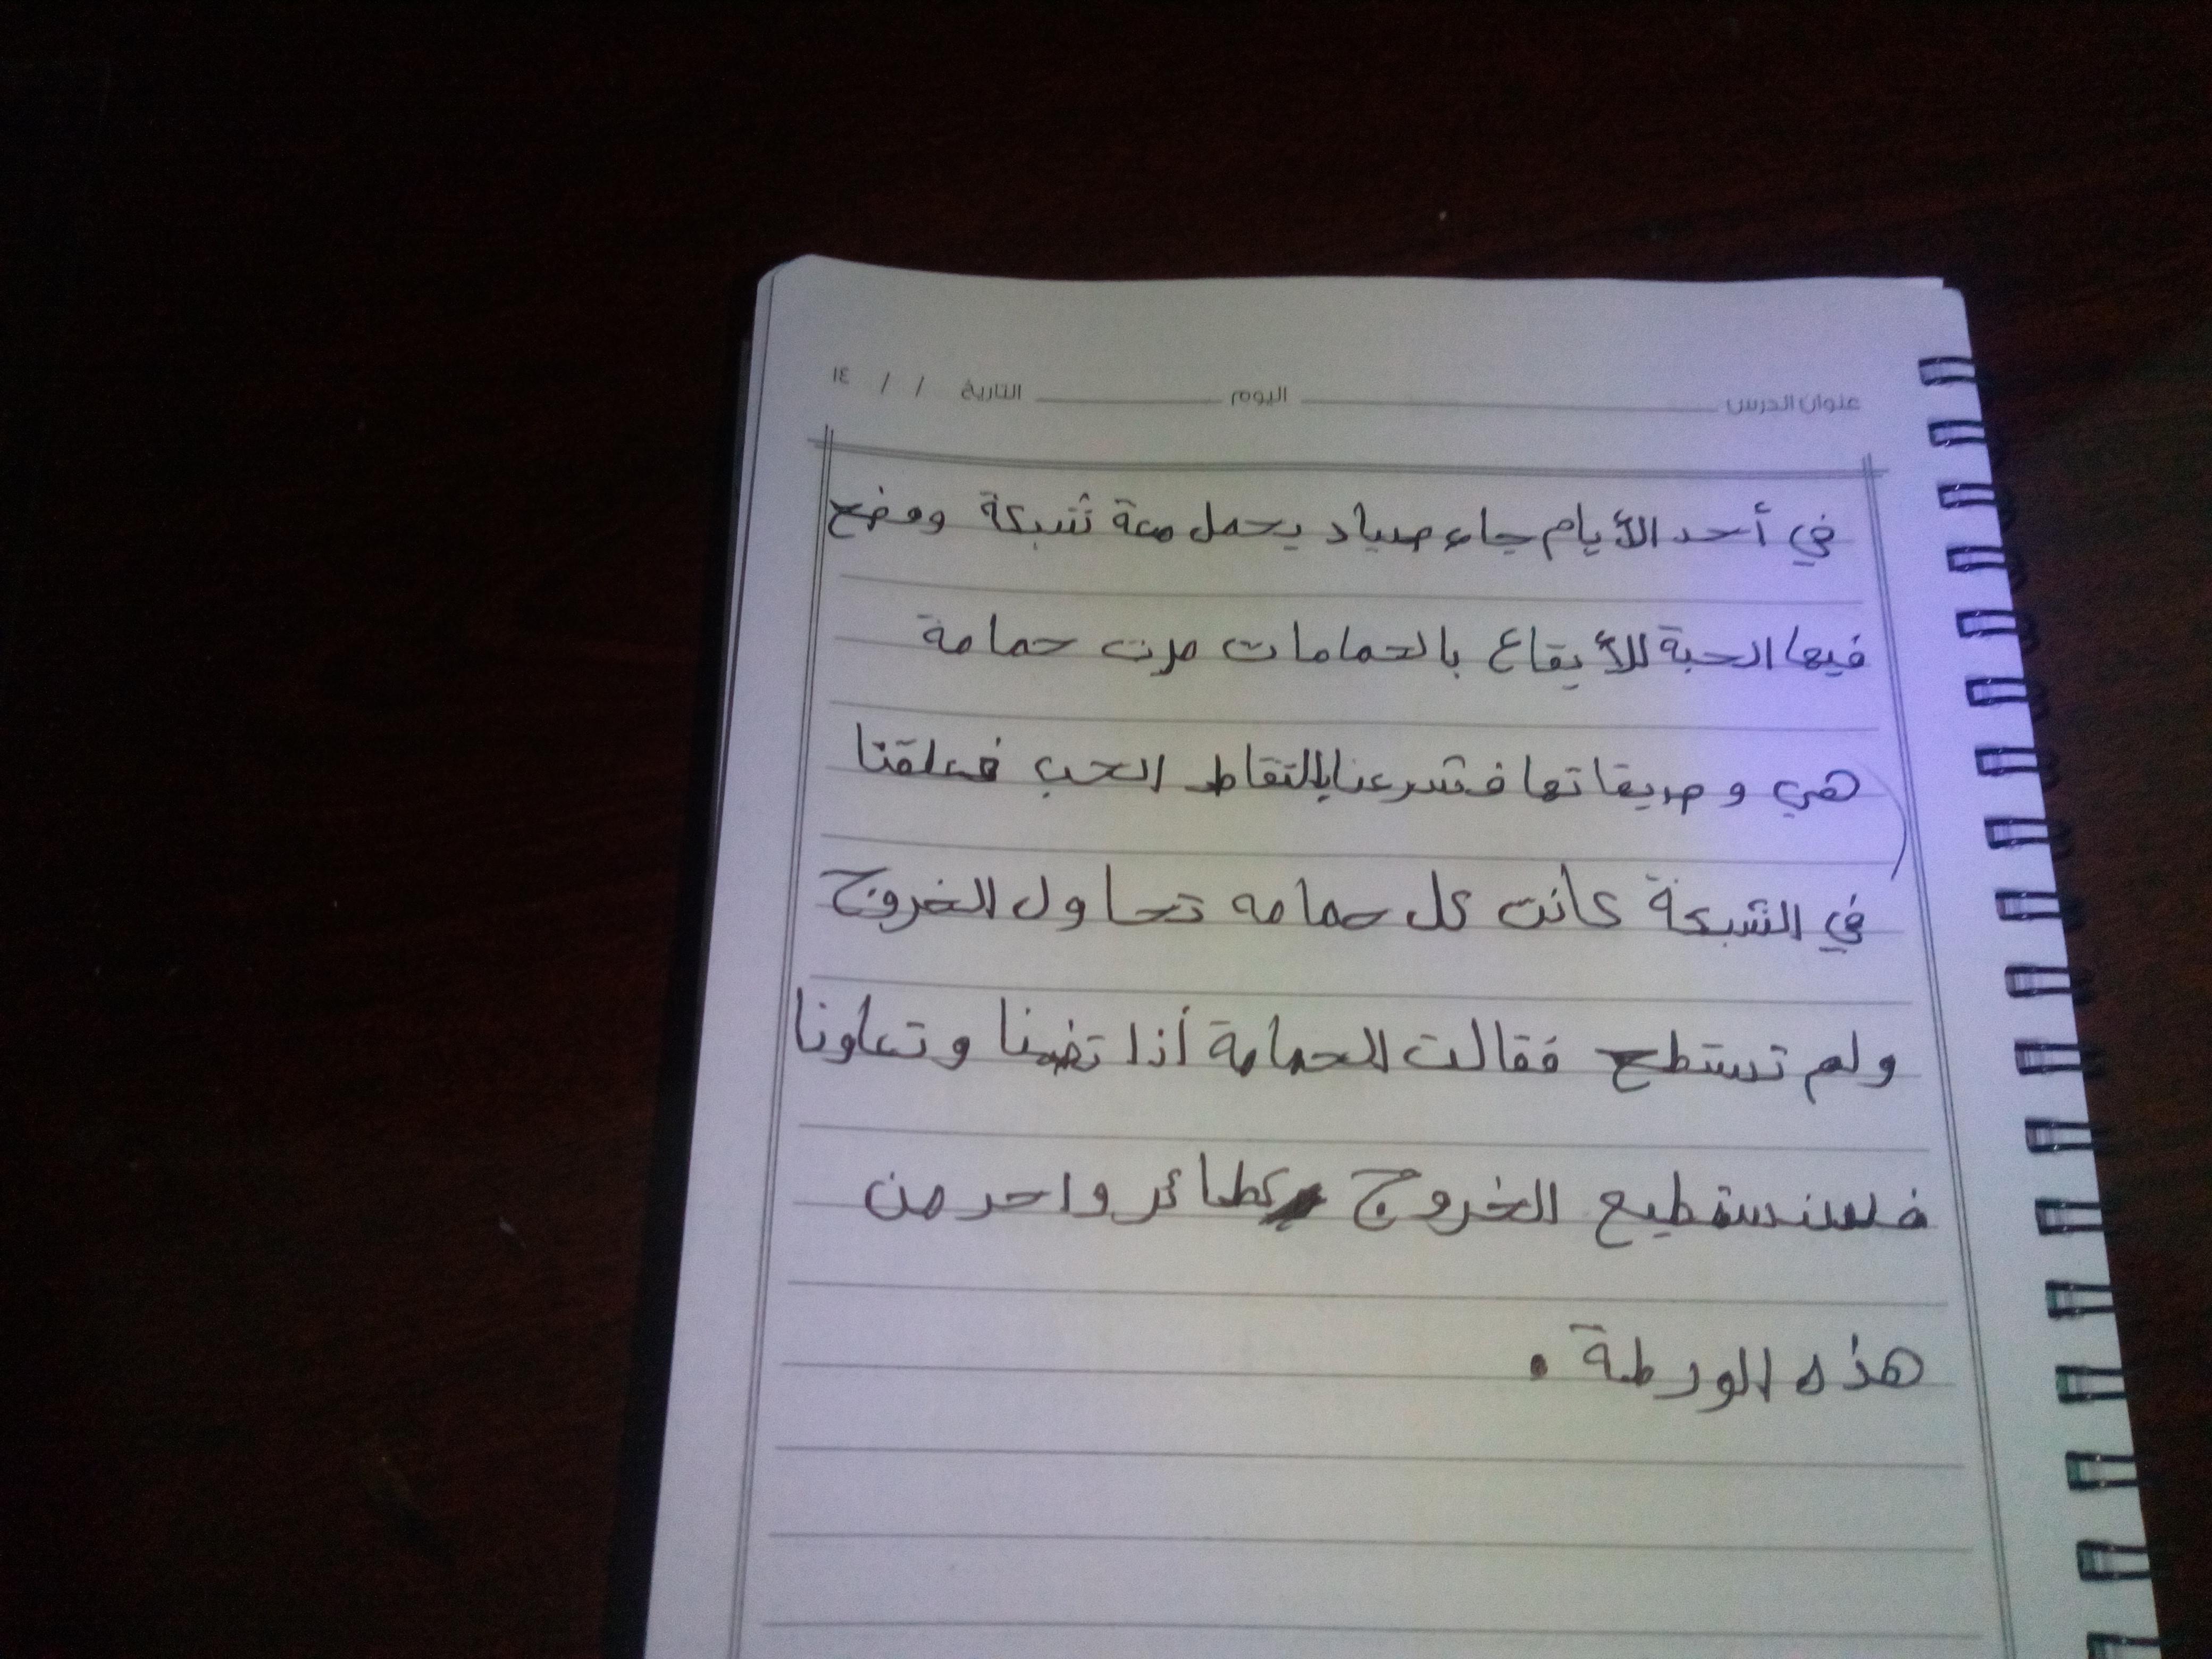 عنوان الدرس اليوم التاريخ / / ١٤
في أحد الأيام جاء صياد يحمل معة شبكة ووضع
فيها الحبة للأيقاع بالحمامات مرت حمامة
هي وصديقاتها فشرعنا بالتقاط الحب فعلقنا
في الشبكة كانت كل حمامه تحاول الخروج
ولم تستطع فقالت الحمامة أذا وتعاونا
فسنستطيع الخروج كطائر واحد من
هذه الورطة .